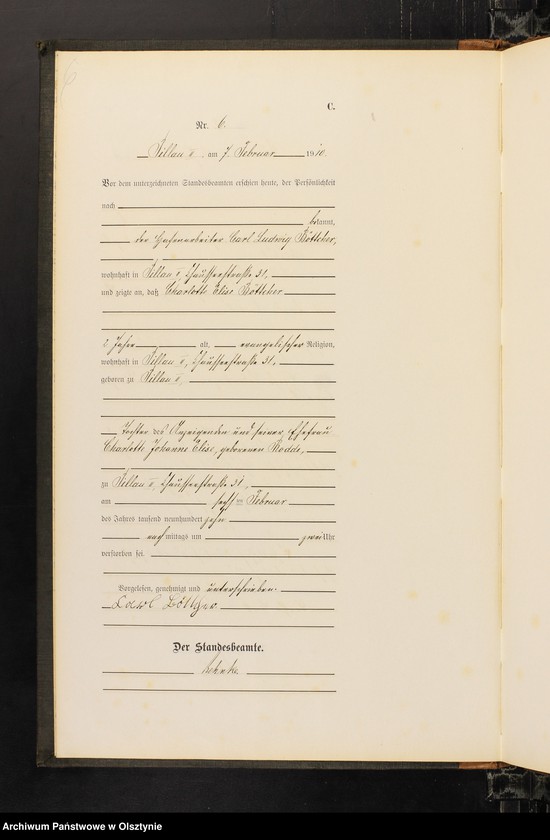 6
C.
Nr. 6.
Pillau II, am 7. Februar 1910.
Vor dem unterzeichneten Standesbeamten erschien heute, der Persönlichkeit
nach
bekannt,
der Hafenarbeiter Carl Ludwig Böttcher,
wohnhaft in Pillau II, Chausseestraße 31,
und zeigte an, daß Charlotte Elise Böttcher
2 Jahre alt, evangelischer Religion,
wohnhaft in Pillau II, Chausseestraße 31,
geboren zu Pillau II,
Tochter des Anzeigenden und seiner Ehefrau
Charlotte Johanne Elise, geborenen Rodde,
zu Pillau II, Chausseestraße 31,
am sechsten Februar
des Jahres tausend neunhundert zehn
nachmittags um zwei Uhr
verstorben sei.
Vorgelesen, genehmigt und unterschrieben.
Carl Böttcher
Der Standesbeamte.
Archiwum Państwowe w Olsztynie